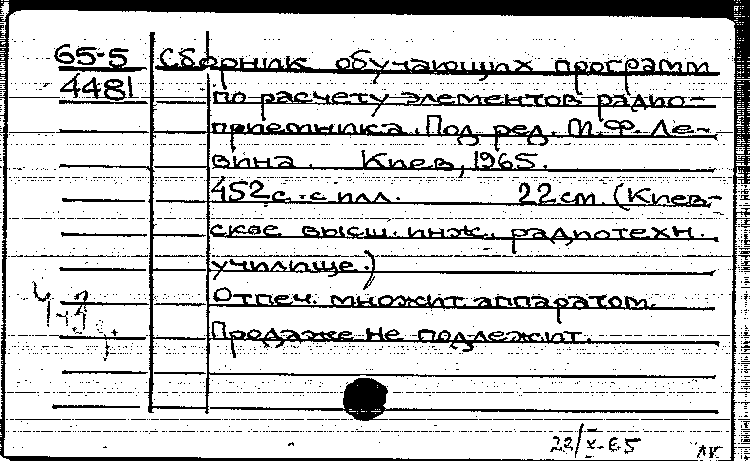 65-5 Сборник обучающих программ
4481 по расчету элементов радио-
приемника. Под ред. М.Ф. Ле-
вина. Киев, 1965.
452 с. с илл. 22 см (Киев-
ское высш. инж. радиотехн.
училище.)
Отпеч. множит аппаратом.
Продаже не подлежит.
22/X-65